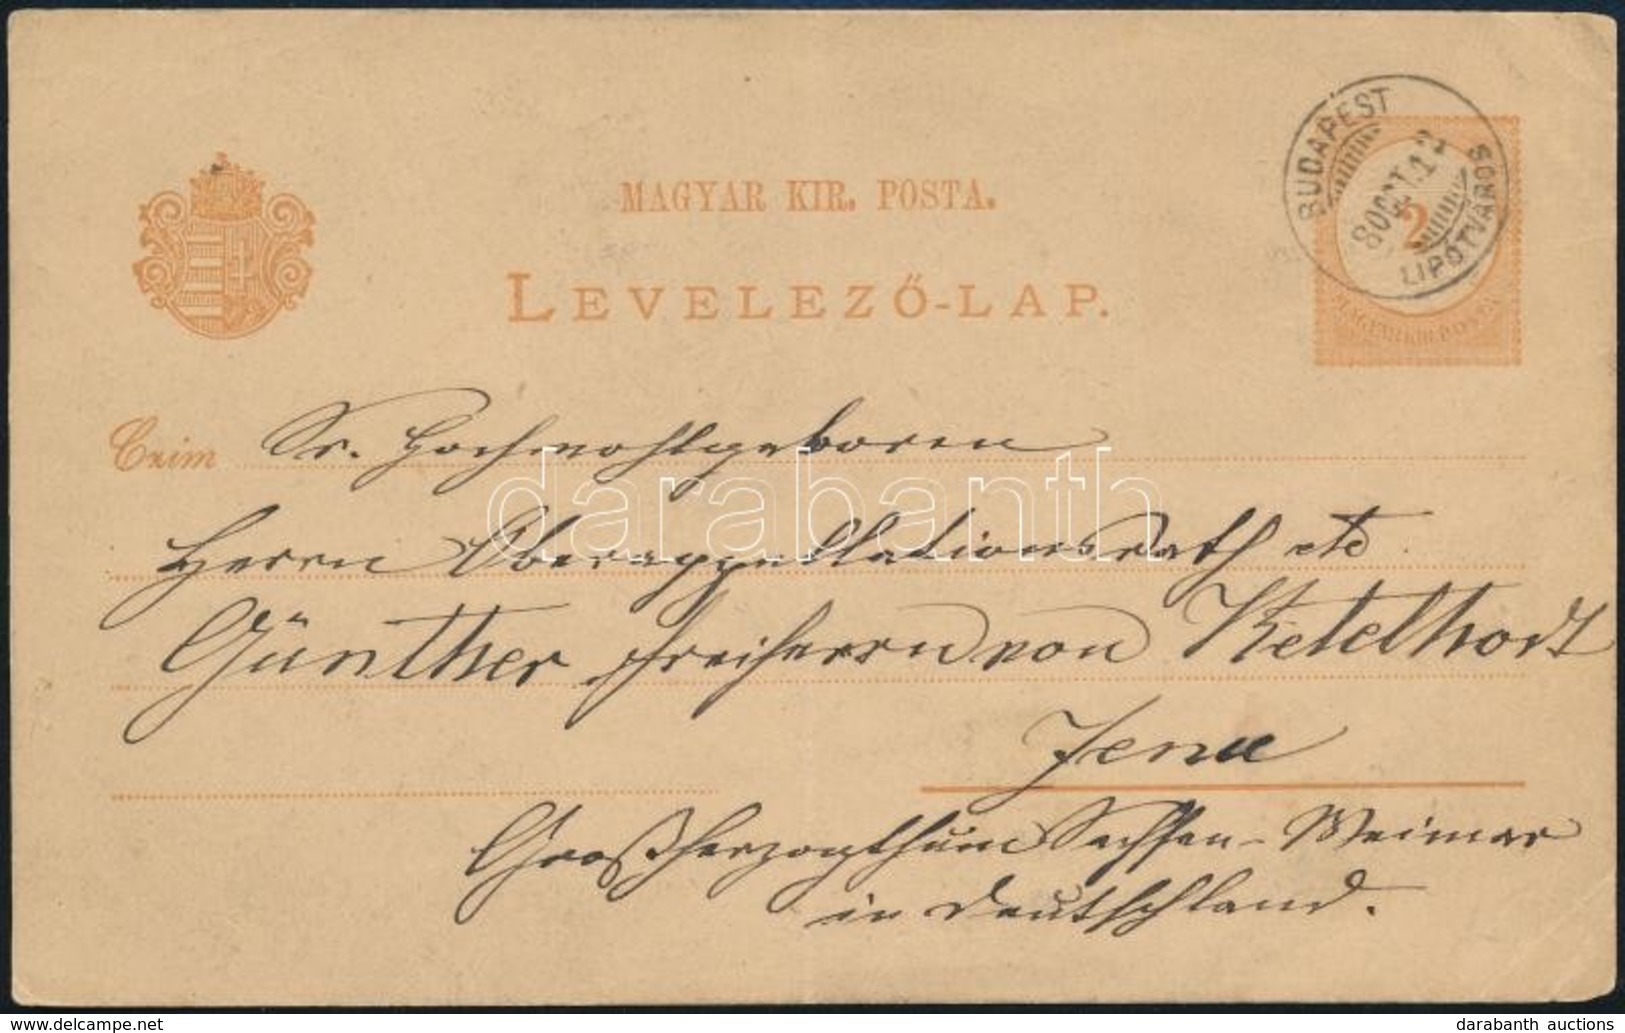 MAGYAR KIR. POSTA.
LEVELEZŐ-LAP.
BUDAPEST
80 OCT. 1
LIPÓTVÁROS
2
MAGYAR KIR. POSTA
Czim
Sr. Hochwohlgeboren
Herrn Oberappellationsrath etc
Günther Freiherrn von Ketelhodt
Jena
Großherzogthum Sachsen-Weimar
in Deutschland.
darabanth
darabanth-j.delcampe.net
darabanth auctions